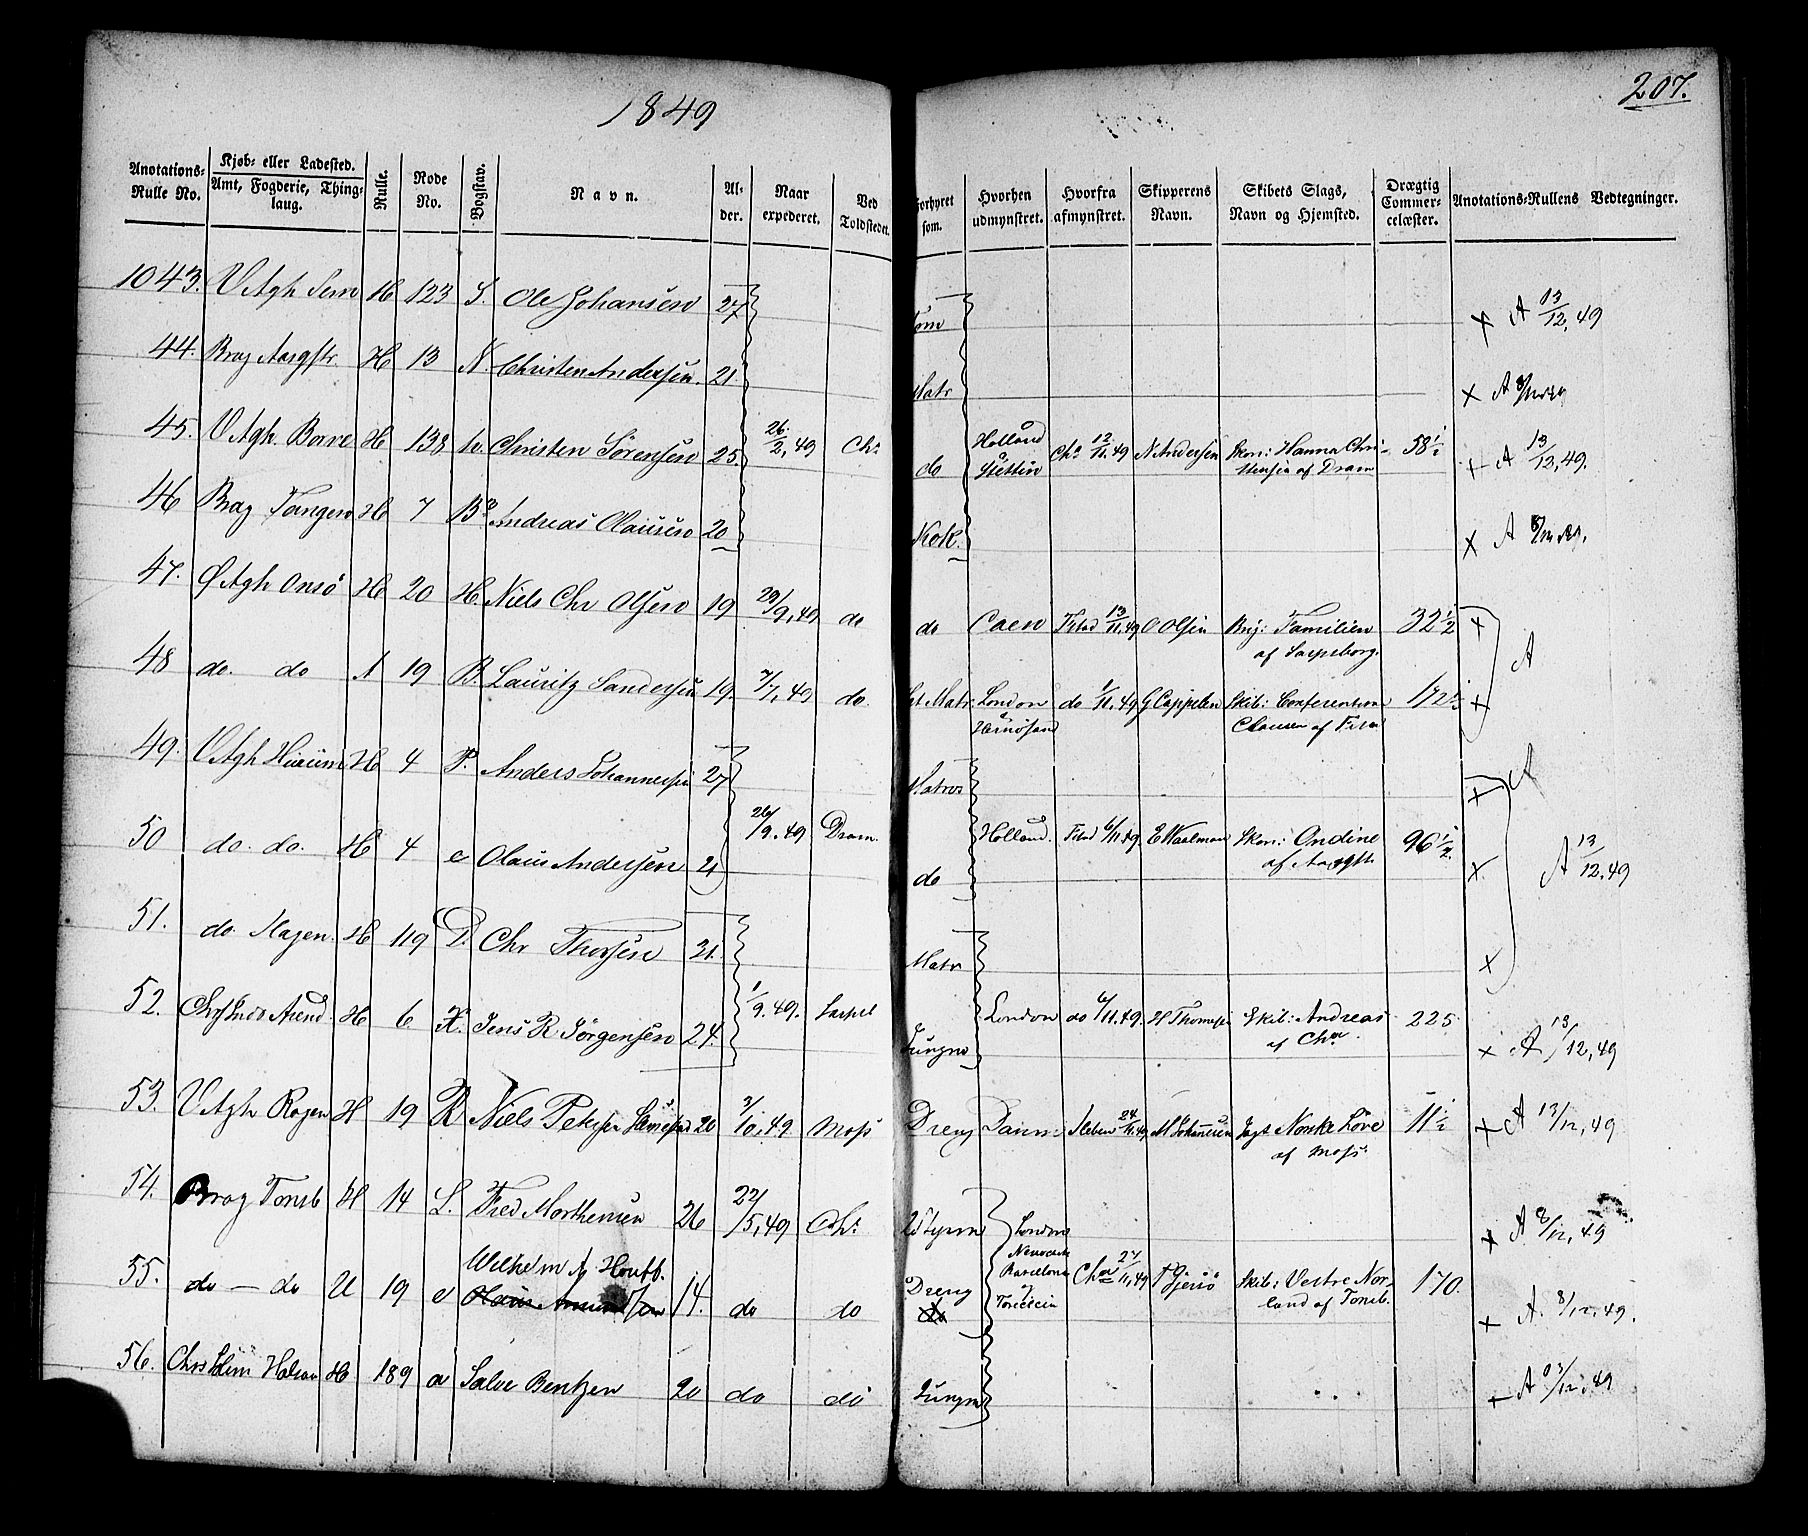 1849
207.
Anotations-Rulle No. | Kjøb- eller Ladested. Amt, Fogderie, Thinglaug. | Rulle. | Rode No. | Bogstav. | Navn. | Alder. | Naar expederet. | Ved Toldstedet. | Forhyret som. | Hvorhen udmynstret. | Hvorfra afmynstret. | Skipperens Navn. | Skibets Slags, Navn og Hjemsted. | Drægtig Commercelæster. | Anotations-Rullens Vedtegninger.
1043. | V Agh Sem | H | 123 | S. | Ole Johansen | 27 | Tom | × A 13/12, 49
44. | Brag Aasgstr. | H | 13 | N. | Christen Andersen. | 21 | Matr | × A
45. | V Agh. Borre | H | 138 | Christen Sørensen | 25. | 26/2, 49 | Chr | do | Holland Stettin | Cha 12/11.49 | N Andersen | Skon: Hanna Christensia af Dram | 58 1/2 | A 13/12, 49.
46 | Brag Tangen | H | 7 | Andreas Olausen | 20 | Kok. | × A
47. | Ø Agh Onsö | H | 20 | H. | Niels Chr Olsen | 19 | 29/9, 49 | do | do | Caen | Fstad 13/11.49 | O Olsen | Brig: Familien af Sarpsborg. | 32 1/2 | × A
48 | do. do | 19 | B. | Lauritz Sandersen | 19. | 7/1, 49 | do. | Matr. | London Hernösand | do 1/11.49 | G Cappelen | Skib: Conferentsr. Clausen af Fstad | 172 | ×
49. | V Agh Hurum | H | 4 | P. | Anders Johannessen | 27 | Matros | × A
50 | do. do. | H | 4 | e | Olaus Andersen | 21 | 26/9.49 | Dram. | do | Holland. | Fstad 6/11.49. | E Waalman | Skon: Ondine af Aasgst. | 96 1/2. | × A 13/12, 49
51. | do Hagen. | H | 119 | D. | Chr Thorsen | 31. | Matr | ×
52. | Arend. | H | 6 | X. | Jens R Jörgensen | 24. | 1/9.49. | Sarpsb | Jungm | London | do 6/11.49. | H Thomesen | Skib: Andreas af Cha. | 225 | × A 13/12, 49
53. | V Agh Rogen | H | 19 | R | Niels Petersen | 20 | 2/10, 49 | Moss | Dreng | Danm: | 24/11.49 | M Johannesen | Jagt Norske Löve af Moss. | 11 1/2 | × A 13/12, 49
54. | Brag Tonsb | H | 14 | L. | Fred Morthensen | 26 | 22/5, 49 | Chr. | Styrm | London Barcelona | Cha 27/11, 49 | Skib: Vestre Norland af Tonsb. | 170. | × A 8/12, 49
55. | do — do | U | 19 | e | Wilhelm | 14. | do | do | Dreng | × A. 8/12, 49.
56. | H | 189 | a | Salve Bentzen | 20 | do | do | Jungm | A 13/12, 49